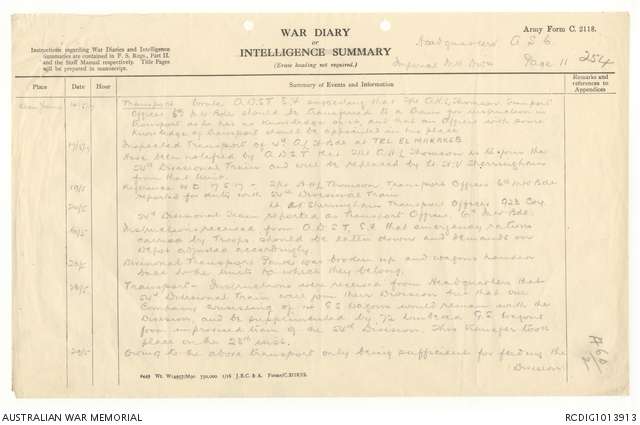 WAR DIARY
or
INTELLIGENCE SUMMARY
(Erase heading not required.)
Army Form C. 2118.
Instructions regarding War Diaries and Intelligence
Summaries are contained in F. S. Regs., Part II.
and the Staff Manual respectively. Title Pages
will be prepared in manuscript.
Headquarters A.S.C.
Imperial Mtd Divn
Page 11
254
Place
Date
Hour
Summary of Events and Information
Remarks and
references to
Appendices
Transport. Wrote A.D.S.T. E.F. suggesting that Thomson Transport
Officer 6th M Bde should be transferred to a Train for instruction in
transport as he has no knowledge of it, and that an Officer with some
knowledge of transport should be appointed in his place
17/5/17
Inspected Transport of 4th L.H. Bde at TEL EL MARAKEB
Have been notified by A.D.S.T. that Thomson is to join the
54th Divisional Train and will be replaced by Lt Sherringham
from that Unit
19/5
Reference W.D. 17.5.17 - Thomson Transport Officer 6th M Bde
reported for duty with 54th Divisional Train
Lt Sherringham Transport Officer Coy
54th Divisional Train reported as Transport Officer 6th M Bde.
Instructions received from A.D.S.T. E.F. that emergency rations
carried by Troops should be eaten down and demands on
Depot adjusted accordingly.
Divisional Transport Park was broken up and wagons handed
back to the units to which they belong.
Transport - Instructions were received from Headquarters that
54th Divisional Train will join their Division but that one
Company consisting of G.S. Wagons would remain with the
Division, and be supplemented by 72 limbered G.S. Wagons
from improvised train of the 54th Division. This transfer took
place on the 28th inst.
29/5
Owing to the above transport only being sufficient for feeding the
Division
A60
2
AUSTRALIAN WAR MEMORIAL
RCDIG1013913